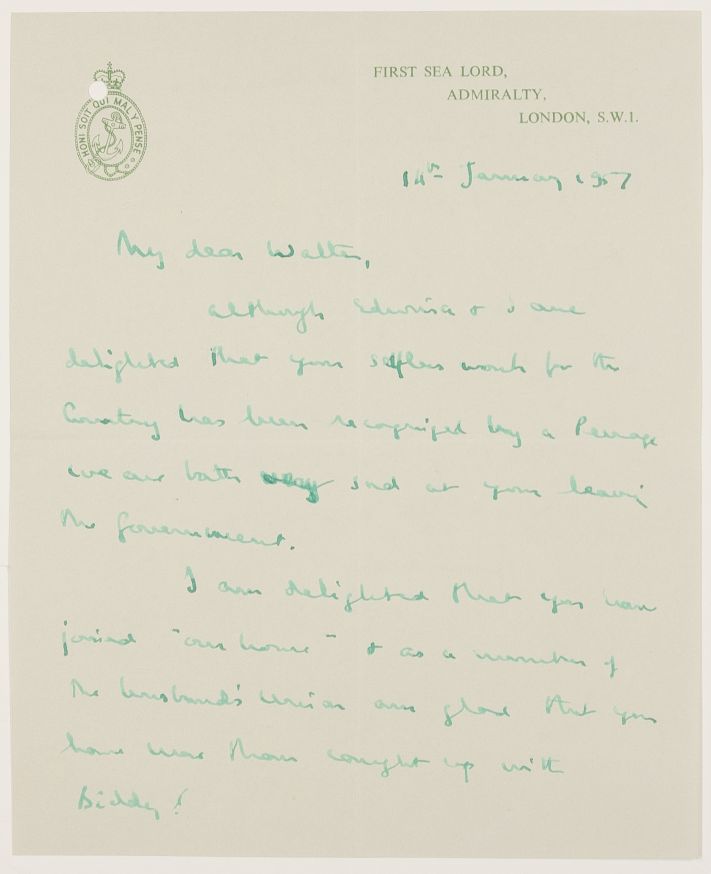 HONI SOIT QUI MAL Y PENSE
FIRST SEA LORD,
ADMIRALTY,
LONDON, S.W.1.
14th January 1957
My dear Walter,
although Edwina & I are
delighted that your selfless work for the
Country has been recognized by a Peerage
we are both very sad at your leaving
the Government.
I am delighted that you have
joined "our house" & as a member of
the husband's union am glad that you
have more than caught up with
Biddy!